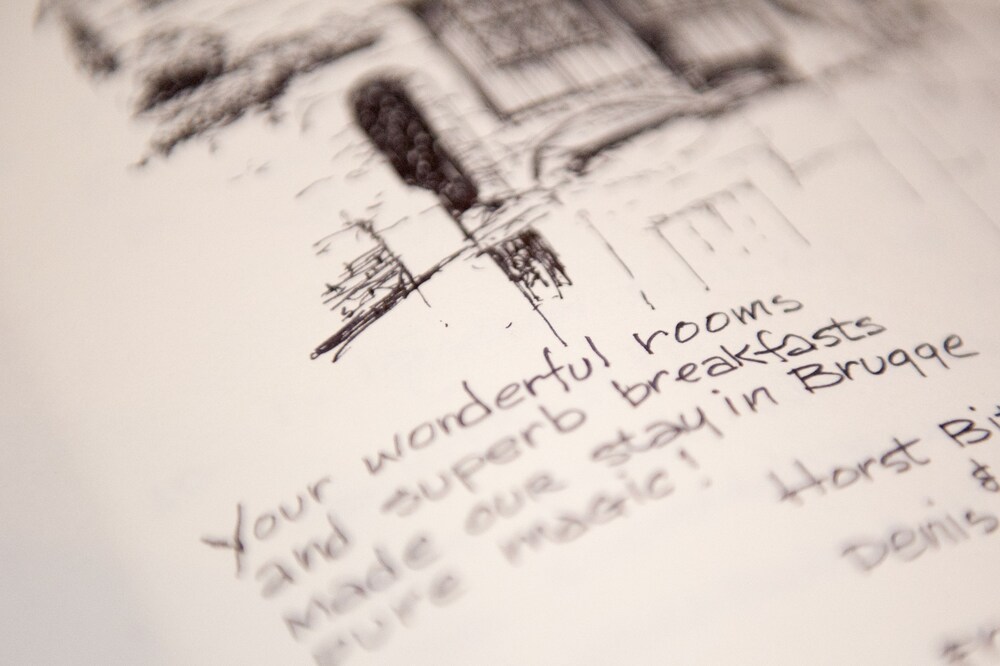 Your wonderful rooms
and superb breakfasts
made our stay in Brugge
pure magic!
Horst
&
Denis